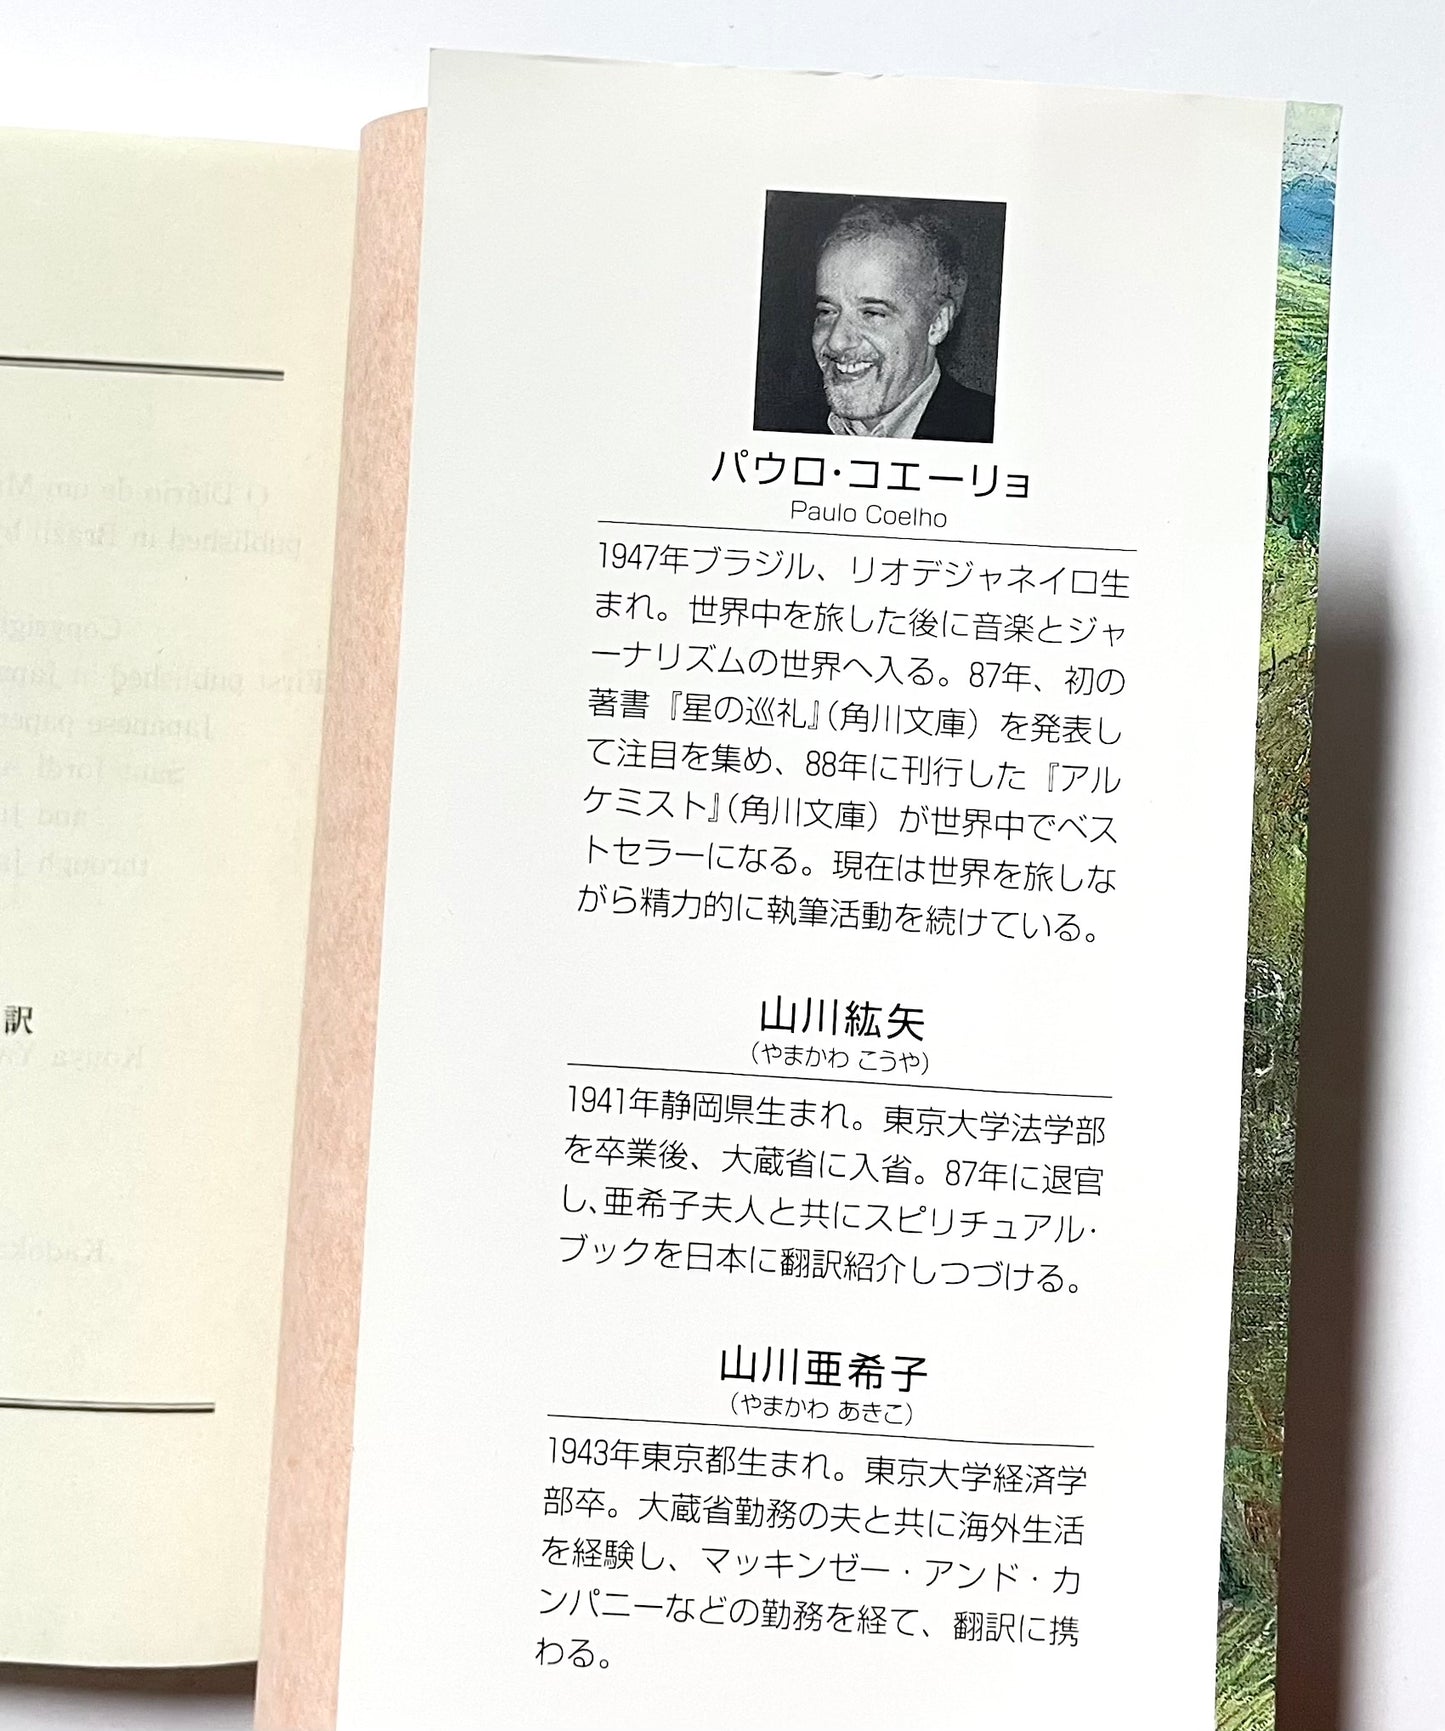 パウロ・コエーリョ
Paulo Coelho
1947年ブラジル、リオデジャネイロ生
まれ。世界中を旅した後に音楽とジャ
ーナリズムの世界へ入る。87年、初の
著書『星の巡礼』（角川文庫）を発表し
て注目を集め、88年に刊行した『アル
ケミスト』（角川文庫）が世界中でベス
トセラーになる。現在は世界を旅しな
がら精力的に執筆活動を続けている。
山川紘矢
（やまかわ こうや）
1941年静岡県生まれ。東京大学法学部
を卒業後、大蔵省に入省。87年に退官
し、亜希子夫人と共にスピリチュアル・
ブックを日本に翻訳紹介しつづける。
山川亜希子
（やまかわ あきこ）
1943年東京都生まれ。東京大学経済学
部卒。大蔵省勤務の夫と共に海外生活
を経験し、マッキンゼー・アンド・カ
ンパニーなどの勤務を経て、翻訳に携
わる。
訳